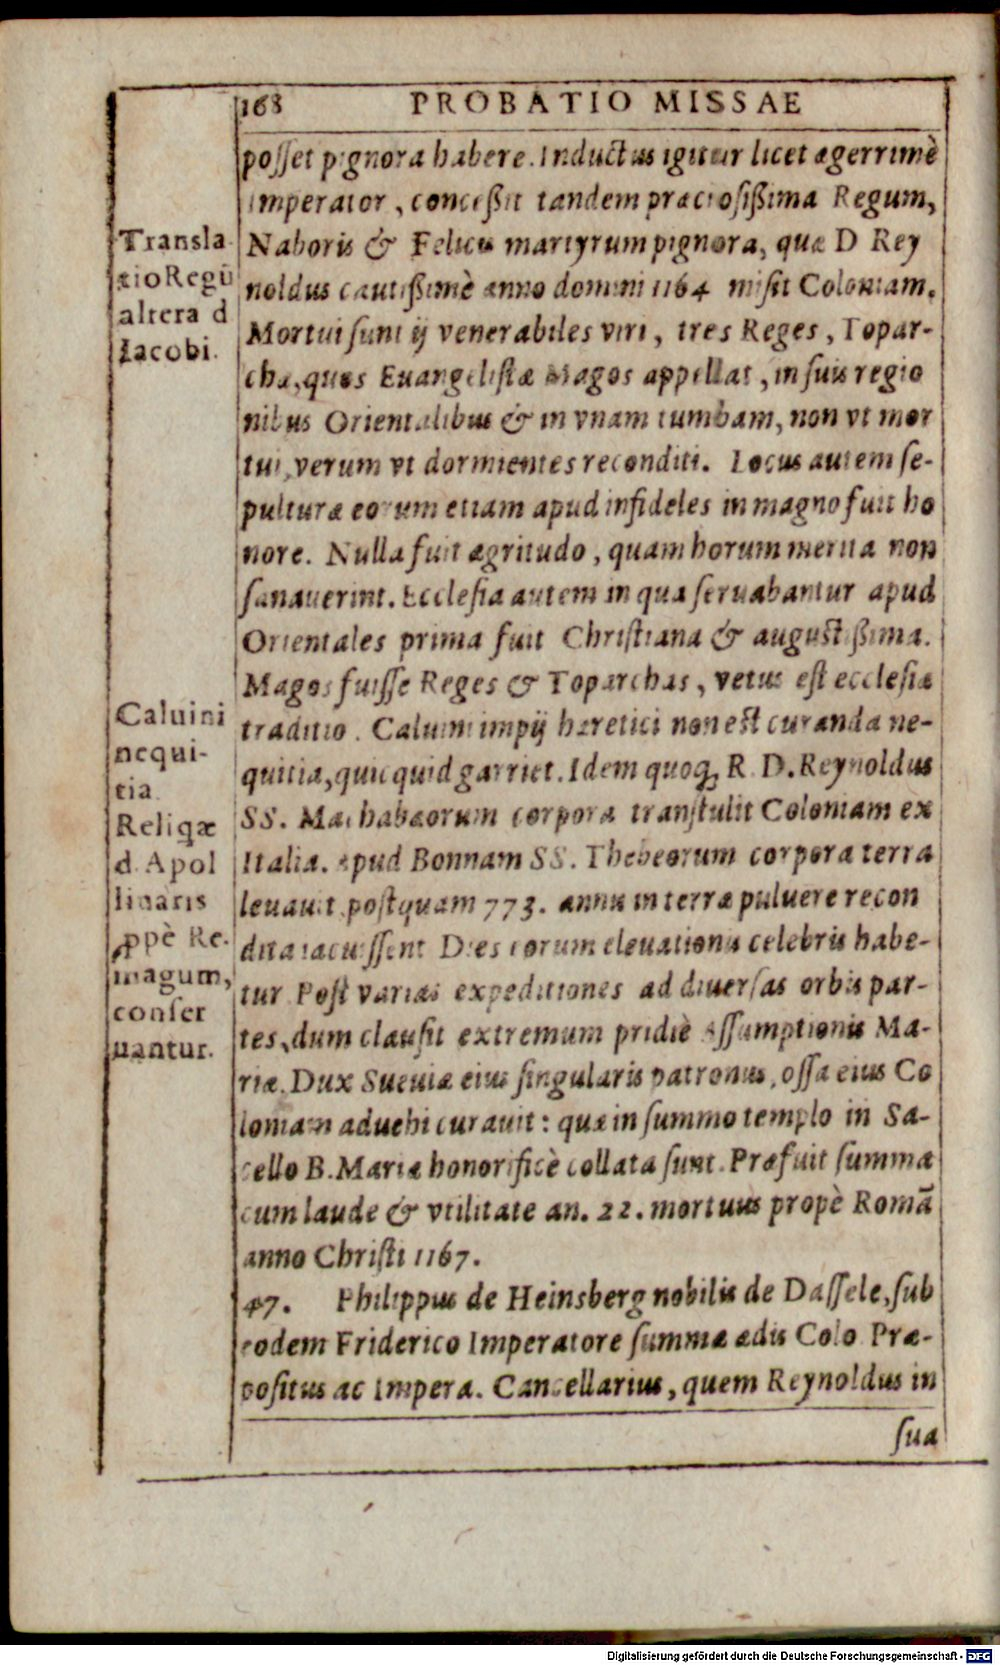 168 PROBATIO MISSAE
posset pignora habere. Inductus igitur licet ægerrimè
Imperator, concessit tandem præciosissima Regum,
Naboris & Felicis martyrum pignora, quæ D Rey
noldus cautissimè anno domini 1164 misit Coloniam.
Mortui sunt ij venerabiles viri, tres Reges, Topar-
chæ, quos Euangelistæ Magos appellat, in suis regio
nibus Orientalibus & in vnam tumbam, non vt mor
tui, verum vt dormientes reconditi. Locus autem se-
pulturæ eorum etiam apud infideles in magno fuit ho
nore. Nulla fuit ægritudo, quam horum merita non
sanauerint. Ecclesia autem in qua seruabantur apud
Orientales prima fuit Christiana & augustissima.
Magos fuisse Reges & Toparchas, vetus est ecclesiæ
traditio. Caluini impij hæretici non est curanda ne-
quitia, quicquid garriet. Idem quoq; R. D. Reynoldus
SS. Machabæorum corpora transtulit Coloniam ex
Italia. Apud Bonnam SS. Thebeorum corpora terra
leuauit postquam 773. annis in terræ puluere recon
dita iacuissent Dies eorum eleuationis celebris habe-
tur Post varias expeditiones ad diuersas orbis par-
tes, dum clausit extremum pridiè Assumptionis Ma-
riæ. Dux Sueuiæ eius singularis patronus, ossa eius Co
loniam aduehi curauit: quæ in summo templo in Sa-
cello B. Mariæ honorificè collata sunt. Præfuit summa
cum laude & vtilitate an. 22. mortuus propè Romā
anno Christi 1167.
47. Philippus de Heinsberg nobilis de Dassele, sub
eodem Friderico Imperatore summæ ædis Colo Præ-
positus ac Impera. Cancellarius, quem Reynoldus in
sua
Transla
tio Regū
altera d
Iacobi.
Caluini
nequi-
tia.
Reliqæ
d. Apol
linaris
ppè Re-
magum,
conser
uantur.
Digitalisierung gefördert durch die Deutsche Forschungsgemeinschaft - DFG